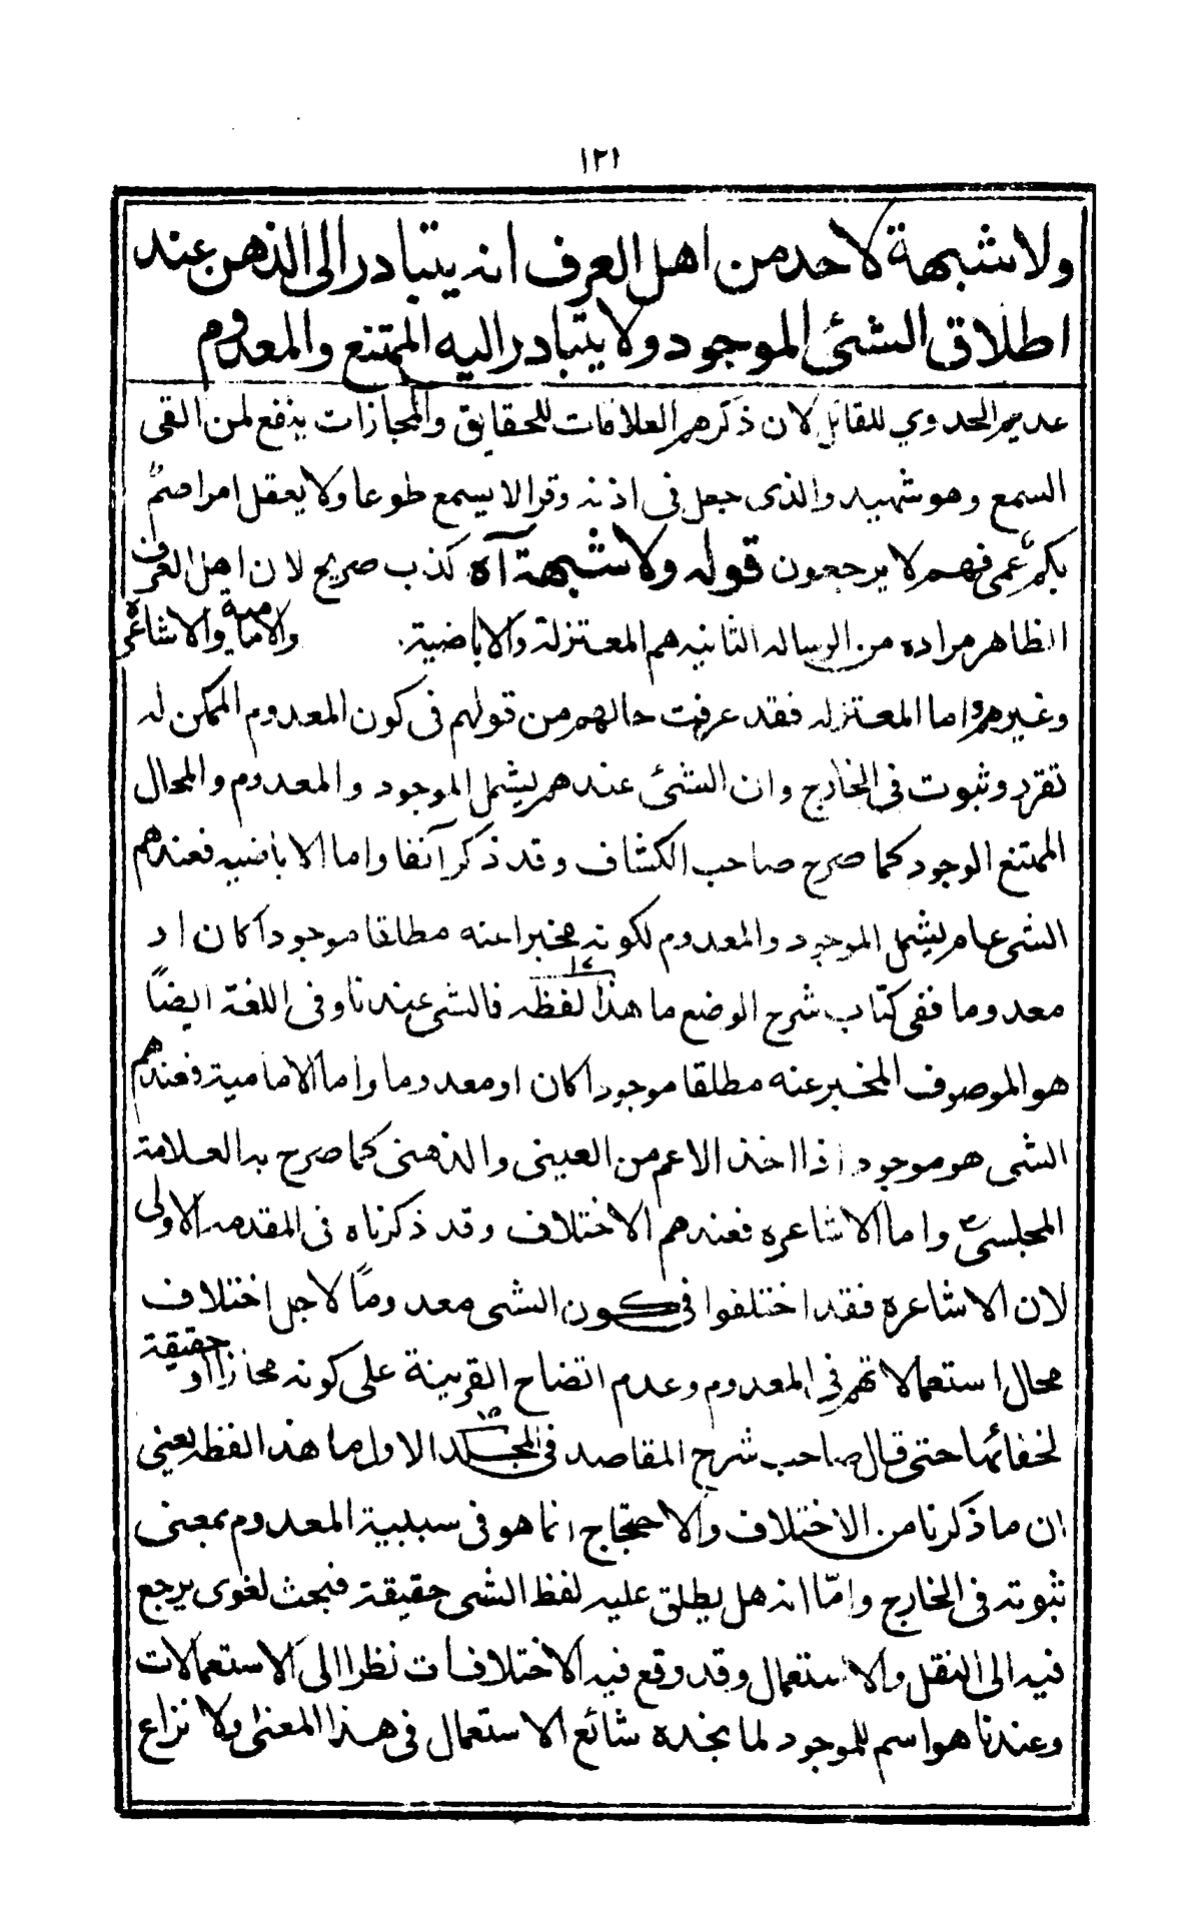 ١٢١
ولا شبهة لاحد من اهل العرف انه يتبادر الى الذهن عند
اطلاق الشئ الموجود ولا يتبادر اليه الممتنع والمعدوم
عديم الجدوي للقائل لان ذكرهم العلاقات للحقايق والمجازات ينفع لمن القى
السمع وهو شهيد والذى جعل فى اذنه وقرا لا يسمع طوعا ولا يعقل امرا صمٌ
بكمٌ عمى فهم لا يرجعون قوله ولا شبهة آه كذب صريح لان اهل العرف
الظاهر مراده من الرساله الثانيه هم المعتزلة والاباضية والامامية والاشاعرة
وغيرهم واما المعتزله فقد عرفت حالهم من قولهم فى كون المعدوم الممكن له
تقرر وثبوت فى الخارج وان الشئ عندهم يشمل الموجود والمعدوم والمحال
الممتنع الوجود كما صرح صاحب الكشاف وقد ذكر آنفا واما الاباضيه فعندهم
الشى عام يشمل الموجود والمعدوم لكونه مخبرا عنه مطلقا موجودا كان او
معدوما ففى كتاب شرح الوضع ما هذا لفظه فالشى عندنا وفى اللغة ايضاً
هو الموصوف المخبر عنه مطلقا موجودا كان او معدوما واما الامامية فعندهم
الشى هو موجود اذا اخذ الاعم من العينى والذهنى كما صرح به العلامة
المجلسى واما الاشاعره فعندهم الاختلاف وقد ذكرناه فى المقدمه الاولى
لان الاشاعره فقد اختلفوا فى كون الشى معدوماً لاجل اختلاف
محال استعمالاتهم فى المعدوم وعدم اتضاح القرينة على كونه مجازا او حقيقة
لخفائها حتى قال صاحب شرح المقاصد فى المجلد الاول ما هذا لفظه يعنى
ان ما ذكرنا من الاختلاف والاحتجاج انما هو فى سببية المعدوم بمعنى
ثبوته فى الخارج وامّا انه هل يطلق عليه لفظ الشى حقيقة فبحث لغوى يرجع
فيه الى النقل والاستعمال وقد وقع فيه الاختلافات نظرا الى الاستعمالات
وعندنا هو اسم للموجود لما نجده شائع الاستعمال فى هذا المعنى ولا نزاع